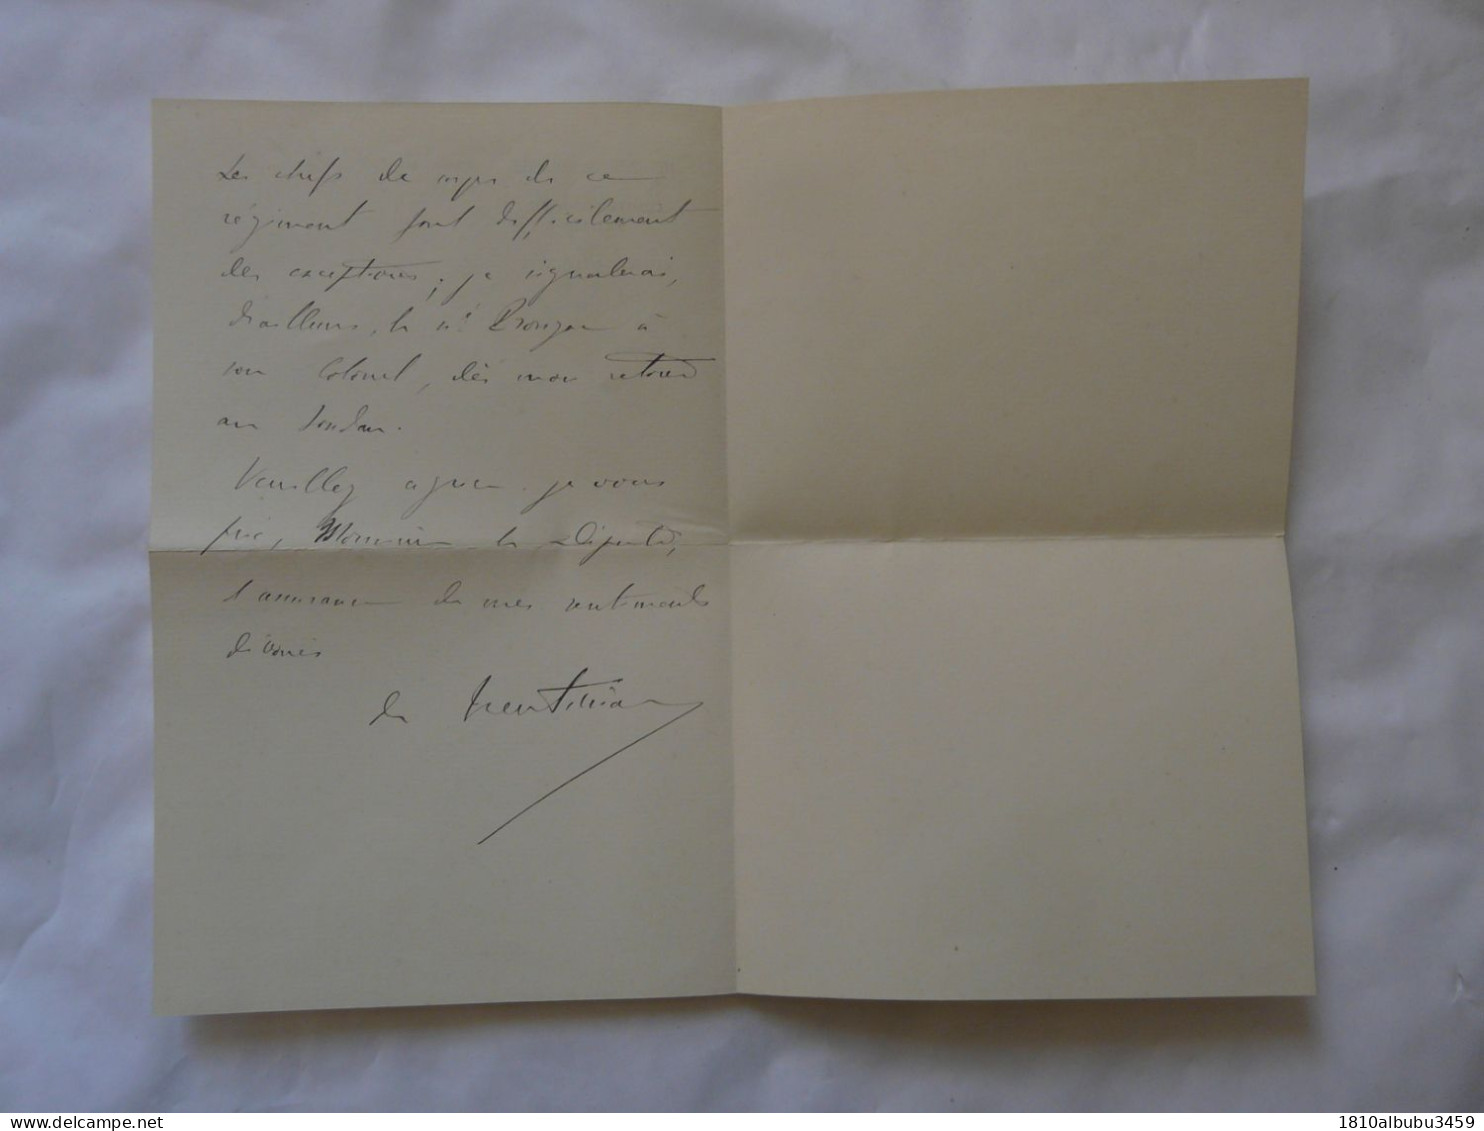 Les chefs de corps de ce
régiment font difficilement
des exceptions; je signalerai,
d'ailleurs, le à
son Colonel, dès mon retour
au Soudan.
Veuillez agréer, je vous
prie, Monsieur le Député,
l'assurance de mes sentiments
dévoués
de Trentinian
delcampe.net
1810albubu3459